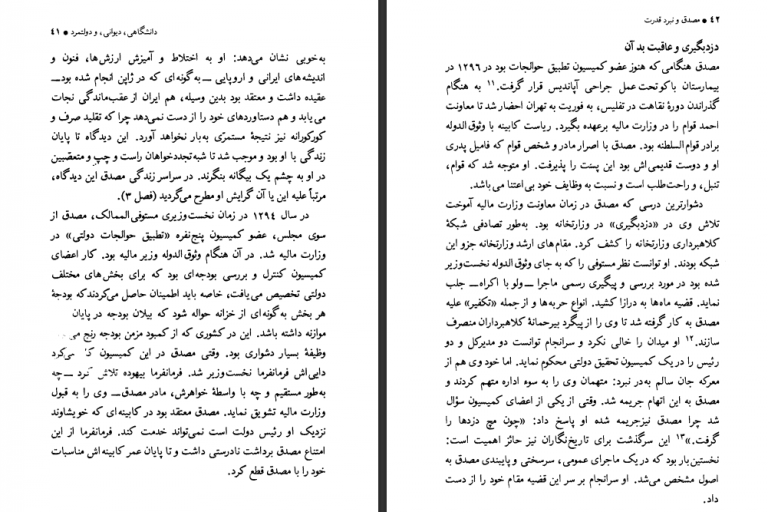 دانشگاهی، دیوانی، و دولتمرد ● ۴۱
به‌خوبی نشان می‌دهد: او به اختلاط و آمیزش ارزش‌ها، فنون و
اندیشه‌های ایرانی و اروپایی ــ به‌گونه‌ای که در ژاپن انجام شده بودـــ
عقیده داشت و معتقد بود بدین وسیله، هم ایران از عقب‌ماندگی نجات
می‌یابد و هم دستاوردهای خود را از دست نمی‌دهد چرا که تقلید صرف و
کورکورانه نیز نتیجهٔ مستمرّی به‌بار نخواهد آورد. این دیدگاه تا پایان
زندگی با او بود و موجب شد تا شبه‌تجددخواهان راست و چپ و متعصبین
در او به چشم یک بیگانه بنگرند. در سراسر زندگی مصدق این دیدگاه،
مرتباً علیه این یا آن گرایش او مطرح می‌گردید (فصل ۳).
در سال ۱۲۹۴ در زمان نخست‌وزیری مستوفی‌الممالک، مصدق از
سوی مجلس، عضو کمیسیون پنج‌نفره «تطبیق حوالجات دولتی» در
وزارت مالیه شد. در آن هنگام وثوق‌الدوله وزیر مالیه بود. کار اعضای
کمیسیون کنترل و بررسی بودجه‌ای بود که برای بخش‌های مختلف
دولتی تخصیص می‌یافت، خاصه باید اطمینان حاصل می‌کردند که بودجهٔ
هر بخش به‌گونه‌ای از خزانه حواله شود که بیلان بودجه در پایان
موازنه داشته باشد. این در کشوری که از کمبود مزمن بودجه رنج
وظیفهٔ بسیار دشواری بود. وقتی مصدق در این کمیسیون کار می‌کرد
دایی‌اش فرمانفرما نخست‌وزیر شد. فرمانفرما بیهوده تلاش کرد ــ چه
به‌طور مستقیم و چه با واسطهٔ خواهرش، مادر مصدق‌ــ وی را به قبول
وزارت مالیه تشویق نماید. مصدق معتقد بود در کابینه‌ای که خویشاوند
نزدیک او رئیس دولت است نمی‌تواند خدمت کند. فرمانفرما از این
امتناع مصدق برداشت نادرستی داشت و تا پایان عمر کابینه‌اش مناسبات
خود را با مصدق قطع کرد.
۴۲ ● مصدق و نبرد قدرت
دزدبگیری و عاقبت بد آن
مصدق هنگامی که هنوز عضو کمیسیون تطبیق حوالجات بود در ۱۲۹۶ در
بیمارستان باکو تحت عمل جراحی آپاندیس قرار گرفت.۱۱ به هنگام
گذراندن دورهٔ نقاهت در تفلیس، به فوریت به تهران احضار شد تا معاونت
احمد قوام را در وزارت مالیه برعهده بگیرد. ریاست کابینه با وثوق‌الدوله
برادر قوام‌السلطنه بود. مصدق با اصرار مادر و شخص قوام که فامیل پدری
او و دوست قدیمی‌اش بود این پست را پذیرفت. او متوجه شد که قوام،
تنبل، و راحت‌طلب است و نسبت به وظایف خود بی‌اعتنا می‌باشد.
دشوارترین درسی که مصدق در زمان معاونت وزارت مالیه آموخت
تلاش وی در «دزدبگیری» در وزارتخانه بود. به‌طور تصادفی شبکهٔ
کلاهبرداری وزارتخانه را کشف کرد. مقام‌های ارشد وزارتخانه جزو این
شبکه بودند. او توانست نظر مستوفی را که به جای وثوق‌الدوله نخست‌وزیر
شده بود در مورد بررسی و پیگیری رسمی ماجرا ــ ولو با اکراه‌ــ جلب
نماید. قضیه ماه‌ها به درازا کشید. انواع حربه‌ها و از جمله «تکفیر» علیه
مصدق به کار گرفته شد تا وی را از پیگرد بیرحمانهٔ کلاهبرداران منصرف
سازند.۱۲ او میدان را خالی نکرد و سرانجام توانست دو مدیرکل و دو
رئیس را در یک کمیسیون تحقیق دولتی محکوم نماید. اما خود وی هم از
معرکه جان سالم به‌در نبرد: متهمان وی را به سوء اداره متهم کردند و
مصدق به این اتهام جریمه شد. وقتی از یکی از اعضای کمیسیون سؤال
شد چرا مصدق نیز جریمه شده او پاسخ داد: «چون مچ دزدها را
گرفت.»۱۳ این سرگذشت برای تاریخ‌نگاران نیز حائز اهمیت است:
نخستین‌بار بود که در یک ماجرای عمومی، سرسختی و پایبندی مصدق به
اصول مشخص می‌شد. او سرانجام بر سر این قضیه مقام خود را از دست
داد.